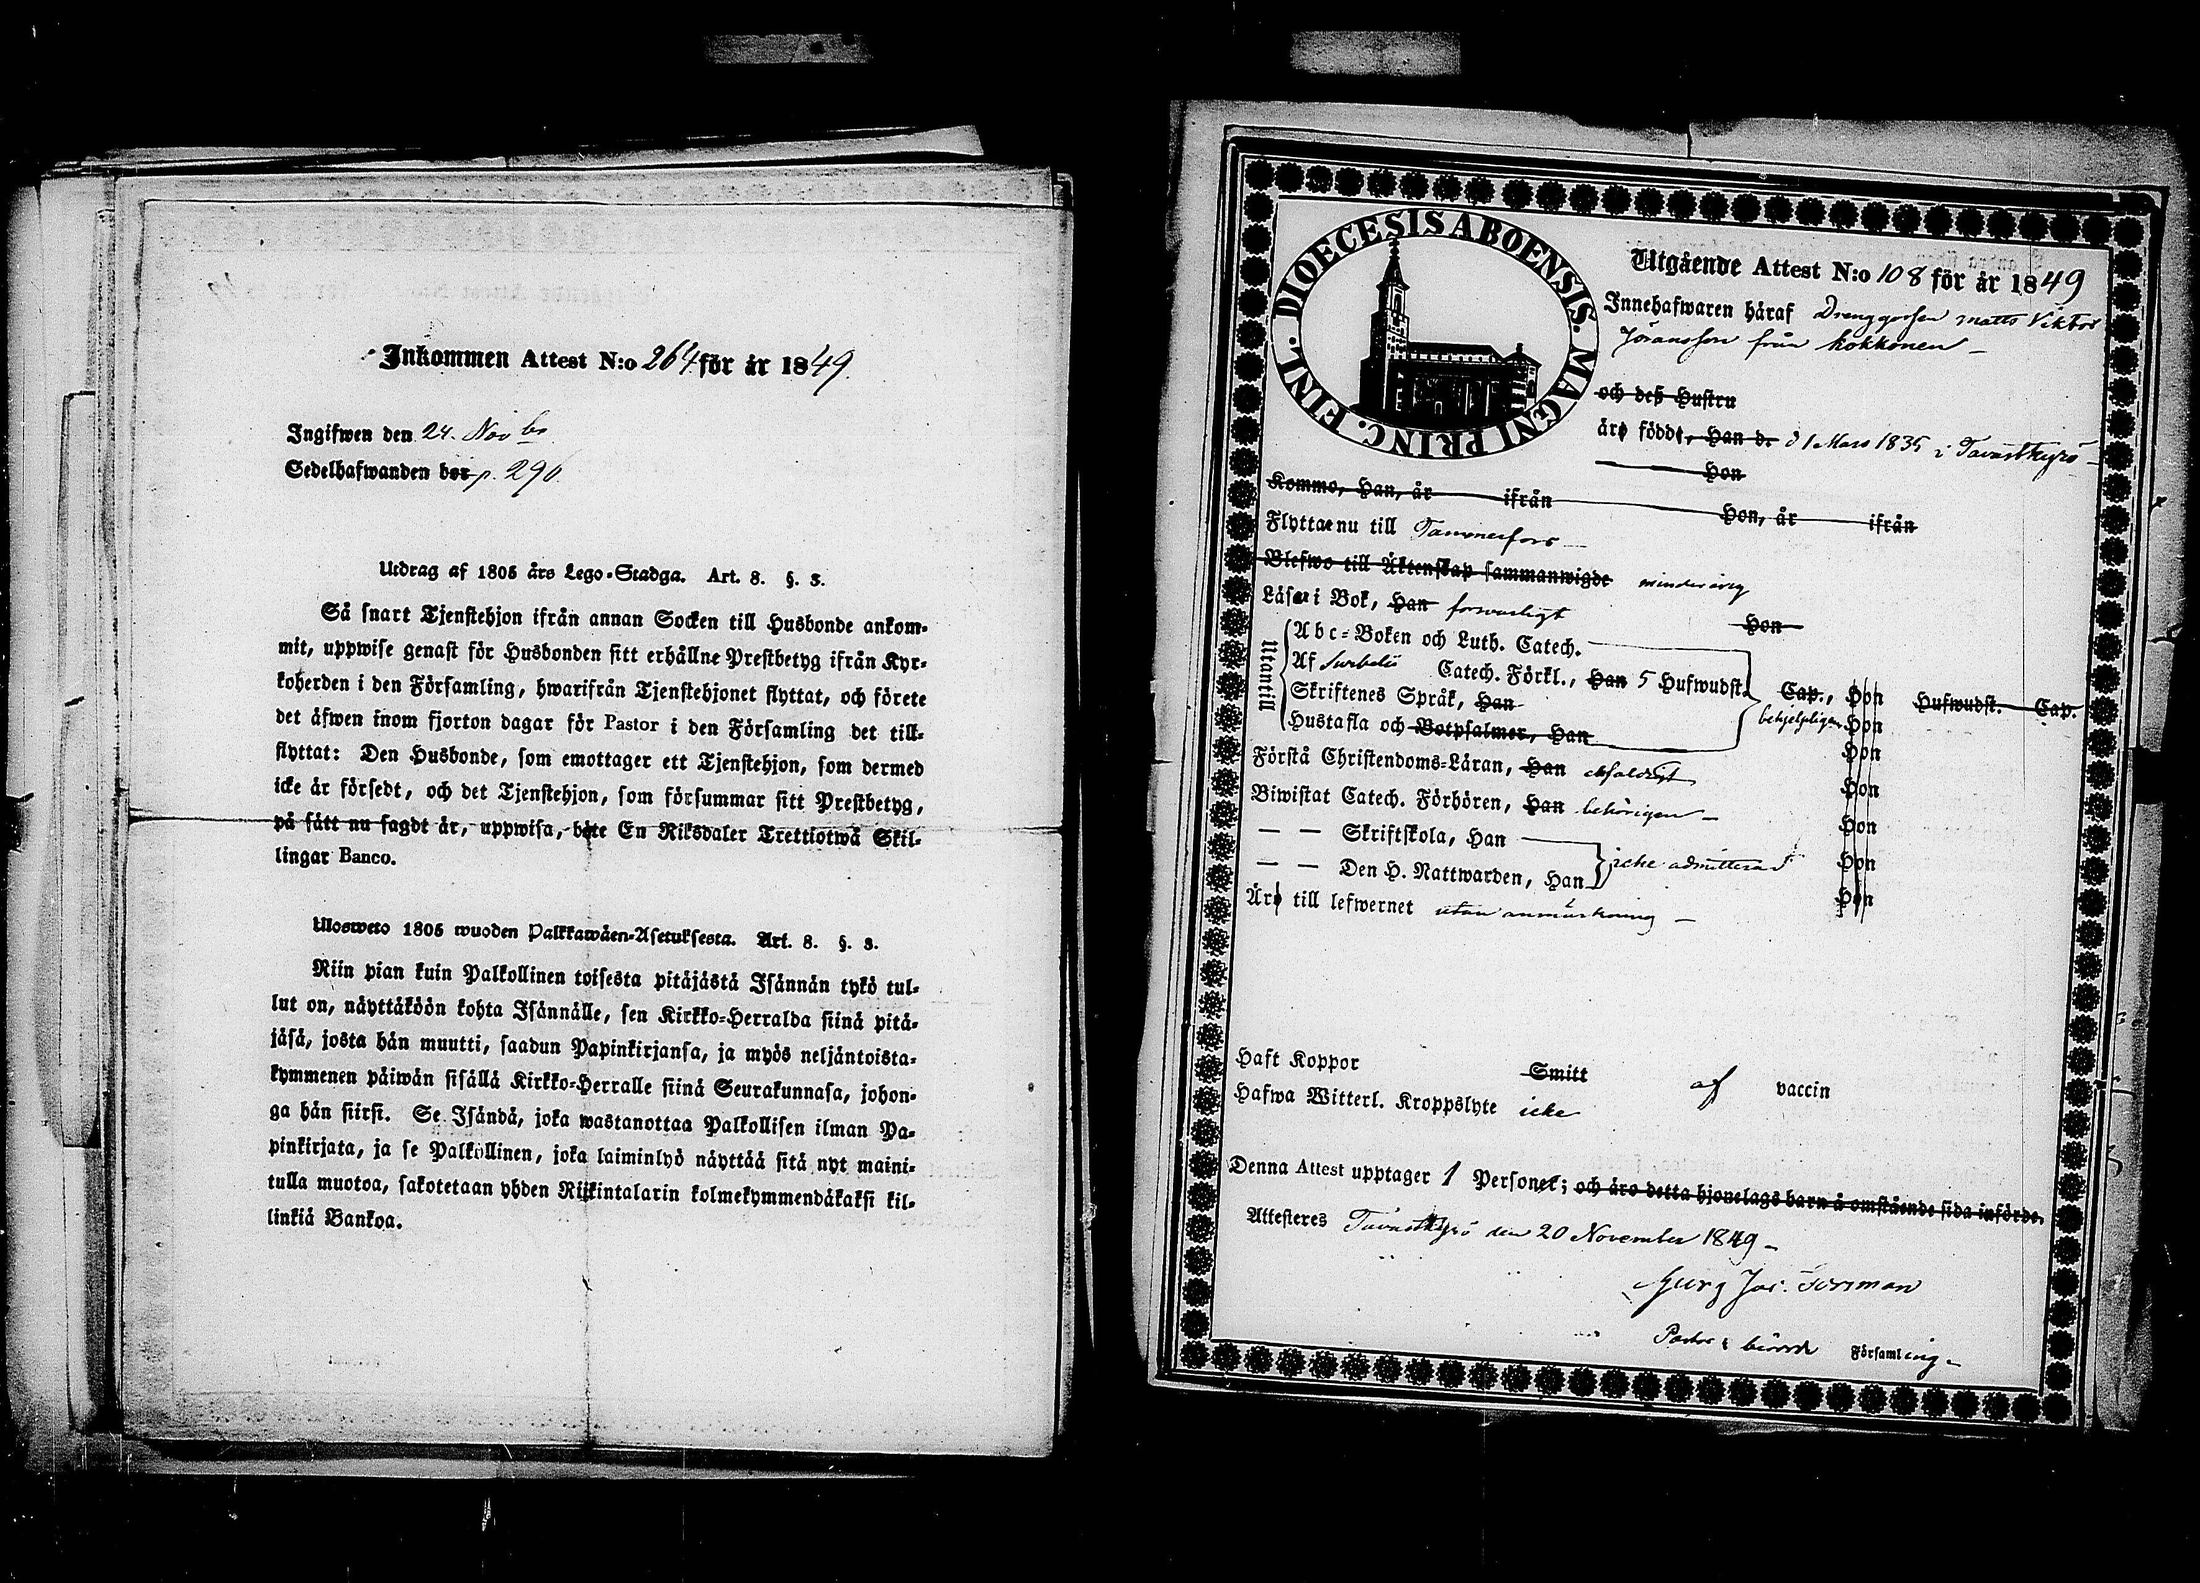 Inkommen Attest N:o 264 för år 1849.
Ingifwen den 24. Novbr
Sedelhafwanden bor p. 290
Utdrag af 1805 års Lego-Stadga. Art. 8. §. 3.
Så snart Tjenstehjon ifrån annan Socken till Husbonde ankom-
mit, uppwise genast för Husbonden sitt erhållne Prestbetyg ifrån Kyr-
koherden i den Församling, hwarifrån Tjenstehjonet flyttat, och förete
det äfwen inom fjorton dagar för Pastor i den Församling det till-
flyttat: Den Husbonde, som emottager ett Tjenstehjon, som dermed
icke är försedt, och det Tjenstehjon, som försummar sitt Prestbetyg,
på sätt nu sagdt är, uppwisa, böte En Riksdaler Trettiotwå Skil-
lingar Banco.
Ulosweto 1805 wuoden Palkkawäen-Asetuksesta. Art. 8. §. 3.
Niin pian kuin Palkollinen toisesta pitäjästä Isännän tykö tul-
lut on, näyttäköön kohta Isännälle, sen Kirkko-Herralda siinä pitä-
jäsä, josta hän muutti, saadun Papinkirjansa, ja myös neljäntoista-
kymmenen päiwän sisällä Kirkko-Herralle siinä Seurakunnasa, johon-
ga hän siirsi. Se Isändä, joka wastanottaa Palkollisen ilman Pa-
pinkirjata, ja se Palkollinen, joka laiminlyö näyttää sitä nyt maini-
tulla muotoa, sakotetaan yhden Riikintalarin kolmekymmendäkaksi kil-
linkiä Bankoa.
DIOECESIS ABOENSIS. MAGNI PRINC. FINL.
Utgående Attest N:o 108 för år 1849
Innehafwaren häraf Drenggossen Matts Viktor
Jöransson från Kokkonen
och deß Hustru
äro födde, Han d. 31 Mars 1835 i Tavastkyrö
Hon
Kommo, Han, år ifrån Hon, år ifrån
Flyttae nu till Tammerfors
Blefwo till Äktenskap sammanwigde minderårig
Läsa i Bok, Han forsvarligt Hon
Utantill
Abc-Boken och Luth. Catech.
Af Svebelii Catech. Förkl., Han 5 Hufwudst. Cap., Hon Hufwudst. Cap.
Skriftenes Språk, Han behjelpligen Hon
Hustafla och Botpsalmer, Han Hon
Förstå Christendoms-Läran, Han enfaldigt Hon
Biwistat Catech. Förhören, Han behörigen Hon
— — Skriftskola, Han Hon
— — Den H. Nattwarden, Han icke admitterad Hon
Äro till lefwernet utan anmärkning
Haft Koppor Smitt af vaccin
Hafwa Witterl. Kroppslyte icke
Denna Attest upptager 1 Personer; och äro detta hjonelags barn å omstående sida införde.
Attesteres Tavastkyrö den 20 November 1849
Georg Jac. Forsman
Pastor i berörde Församling